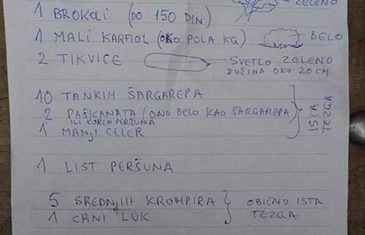 1 BROKOLI (DO 150 DIN) ZELENO
1 MALI KARFIOL (OKO POLA KG) BELO
2 TIKVICE SVETLO ZELENO
DUŽINA OKO 20 CM
10 TANKIH ŠARGAREPA
2 PAŠKANATA (ONO BELO KAO ŠARGAREPA
ILI KOREN PERŠUNA
1 MANJI CELER
ISTA
TEZGA
1 LIST PERŠUNA
5 SREDNJIH KROMPIRA
1 CRNI LUK
OBIČNO ISTA
TEZGA